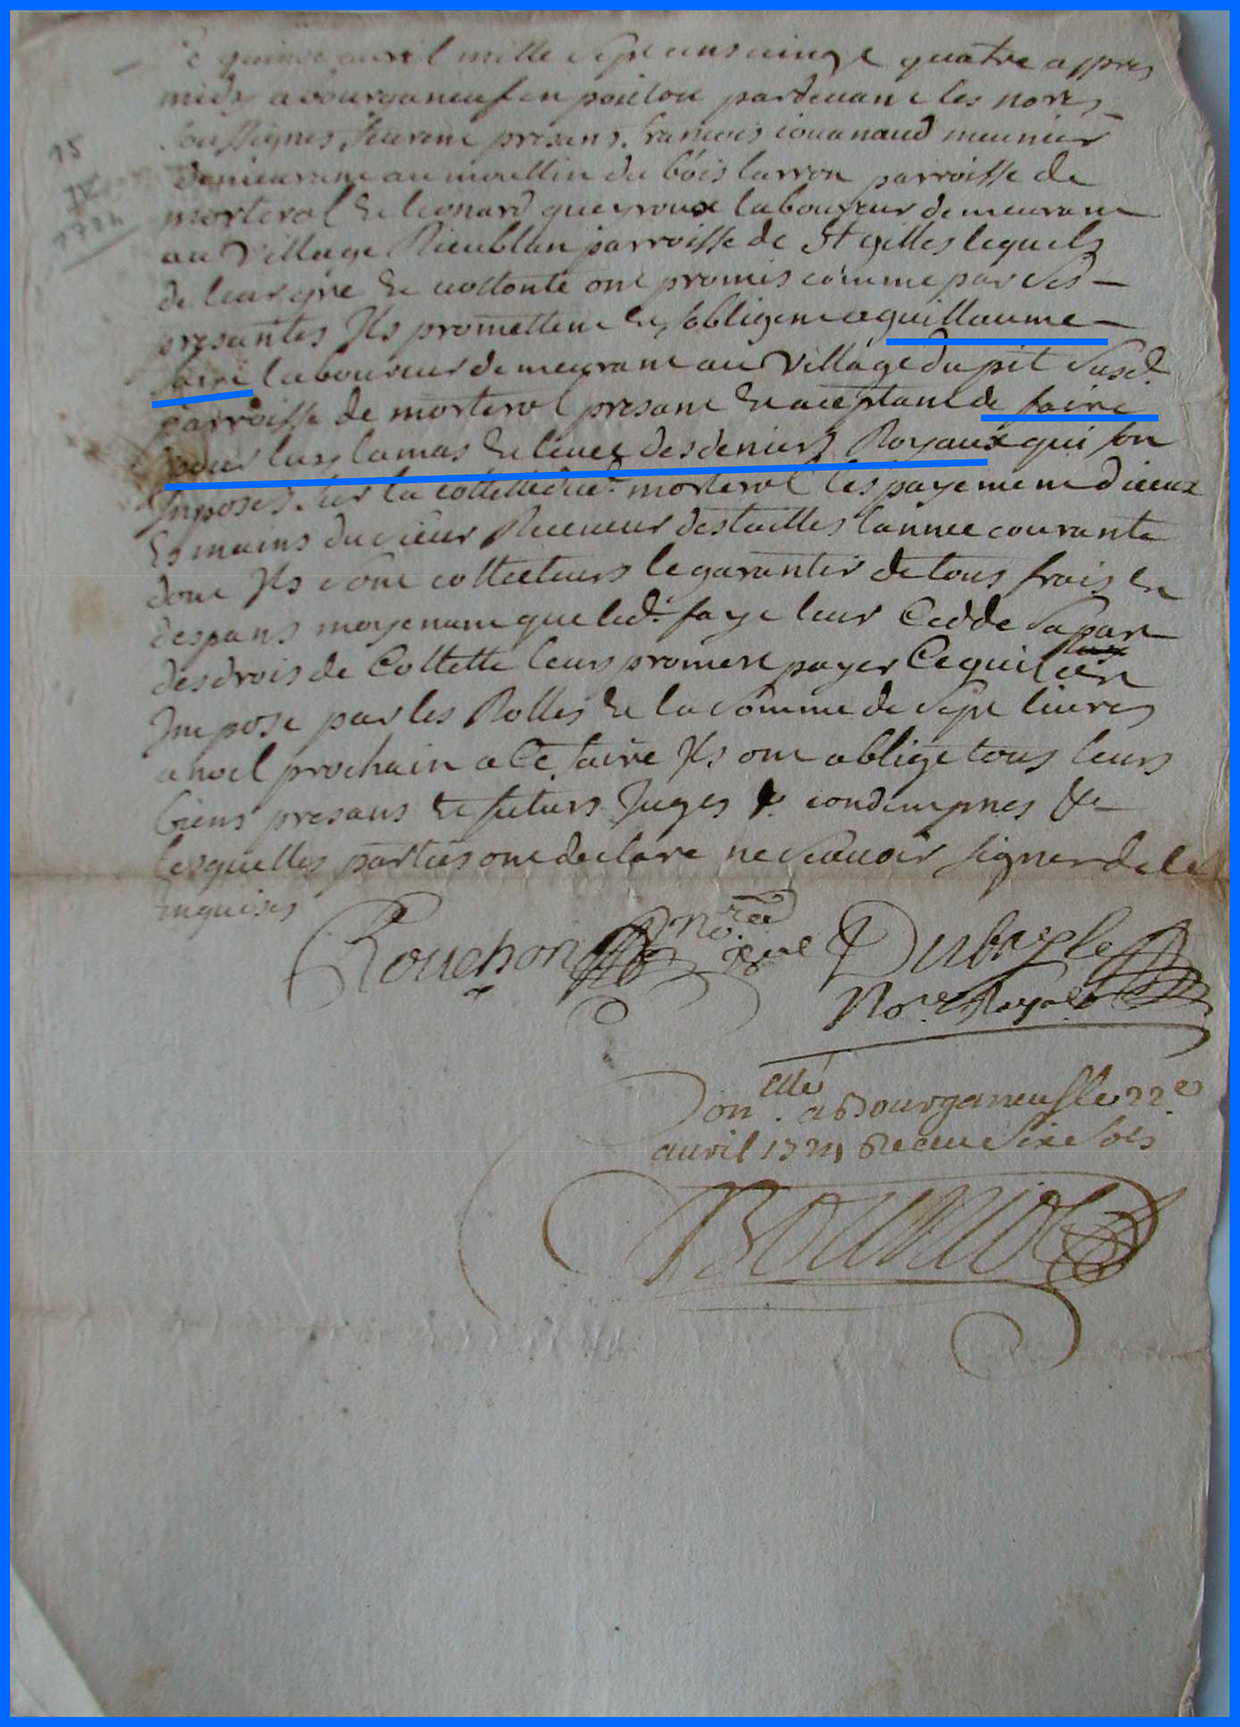 Le quinze avril mille sept cens vingt quatre appres
midy a bourganeuf en poictou pardevant les nores
soussignes furent presens francois jouanaud meunier
demeurant au moullin du bois larron parroisse de
morterol & leonard queyroux laboureur demeurant
au village Rieublan parroisse de St gilles lequels
de leur gre & vollonte ont promis comme par ses
presantes Ils promettent & sobligent a guillaume
faye laboureur demeurant au village du pit susd.
parroisse de morterol presant & aceptant de faire
pour luy lamas & levee des deniers Royaux qui son
Inposes sur la collette dud. morterol les payement diceux
es mains du sieur Receveur des tailles lannee courante
dont Ils sont collecteurs le garantir de tous frais &
despans moyenant que led. faye leur Cedde sa part
des drois de Collette leurs promet payer Ce quil est
Impose par les Rolles & la somme de sept livres
a noel prochain a Ce faire Ils ont oblige tous leurs
biens presans & futurs Juges & condempnes &c
lesquelles parties ont declare ne scavoir signer de ce
enquises
Rouchon no.re Dubayle
No.re Royal
Con.llé a Bourganeuf le 22e
avril 1724 Receu Six Sols
15
IV
1724